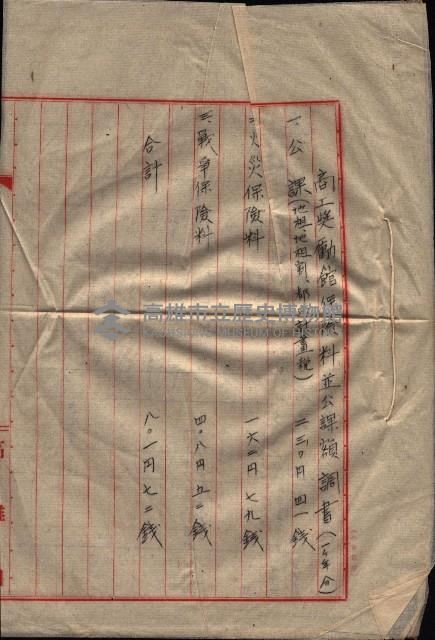 商工奬勵館保險料並公課額調書(一ヶ年分)
一、公課(地租、地租割、都市計畫税) 二三〇円四一銭
二、火災保險料 一六二円七九銭
三、戰爭保險料 四〇八円五二銭
合計 八〇一円七二銭
高雄
高雄市立歷史博物館
KAOHSIUNG MUSEUM OF HISTORY